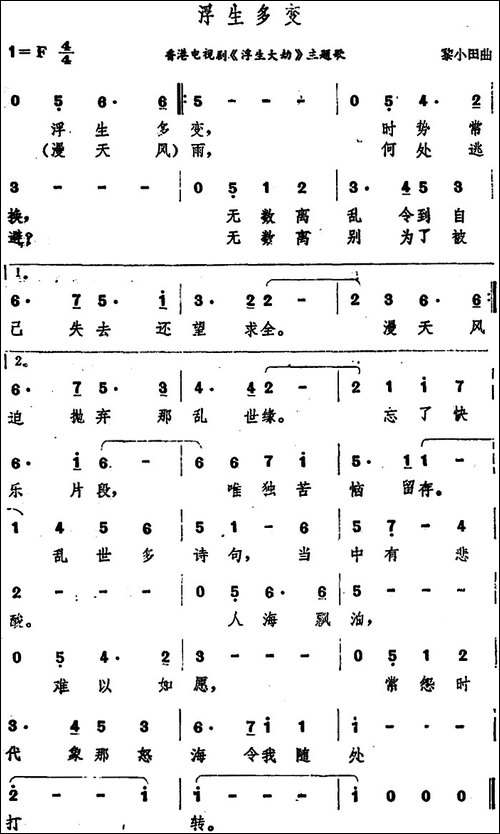 浮生多变
1=F 4/4 香港电视剧《浮生大劫》主题歌 黎小田曲
0 5 6· 6 5 - - - 0 5 4· 2
浮生多变, 时势常
(漫天风)雨, 何处逃
3 - - - 0 5 1 2 3· 4 5 3
换, 无数离乱令到自
避? 无数离别为了被
1.
6· 7 5· i 3· 2 2 - 2 3 6· 6
己失去还望求全。 漫天风
2.
6· 7 5· 3 4· 4 2 - 2 1 i 7
迫抛弃那乱世缘。 忘了快
6· i 6 - 6 6 7 i 5· 1 1 -
乐片段, 唯独苦恼留存。
1 4 5 6 5 1 - 6 5 7 - 4
乱世多诗句, 当中有悲
2 - - - 0 5 6· 6 5 - - -
酸。 人海飘泊,
0 5 4· 2 3 - - - 0 5 1 2
难以如愿, 常怨时
3· 4 5 3 6· 7 i 1 i - - -
代象那怒海令我随处
2 - - i i - - - i 0 0 0
打转。